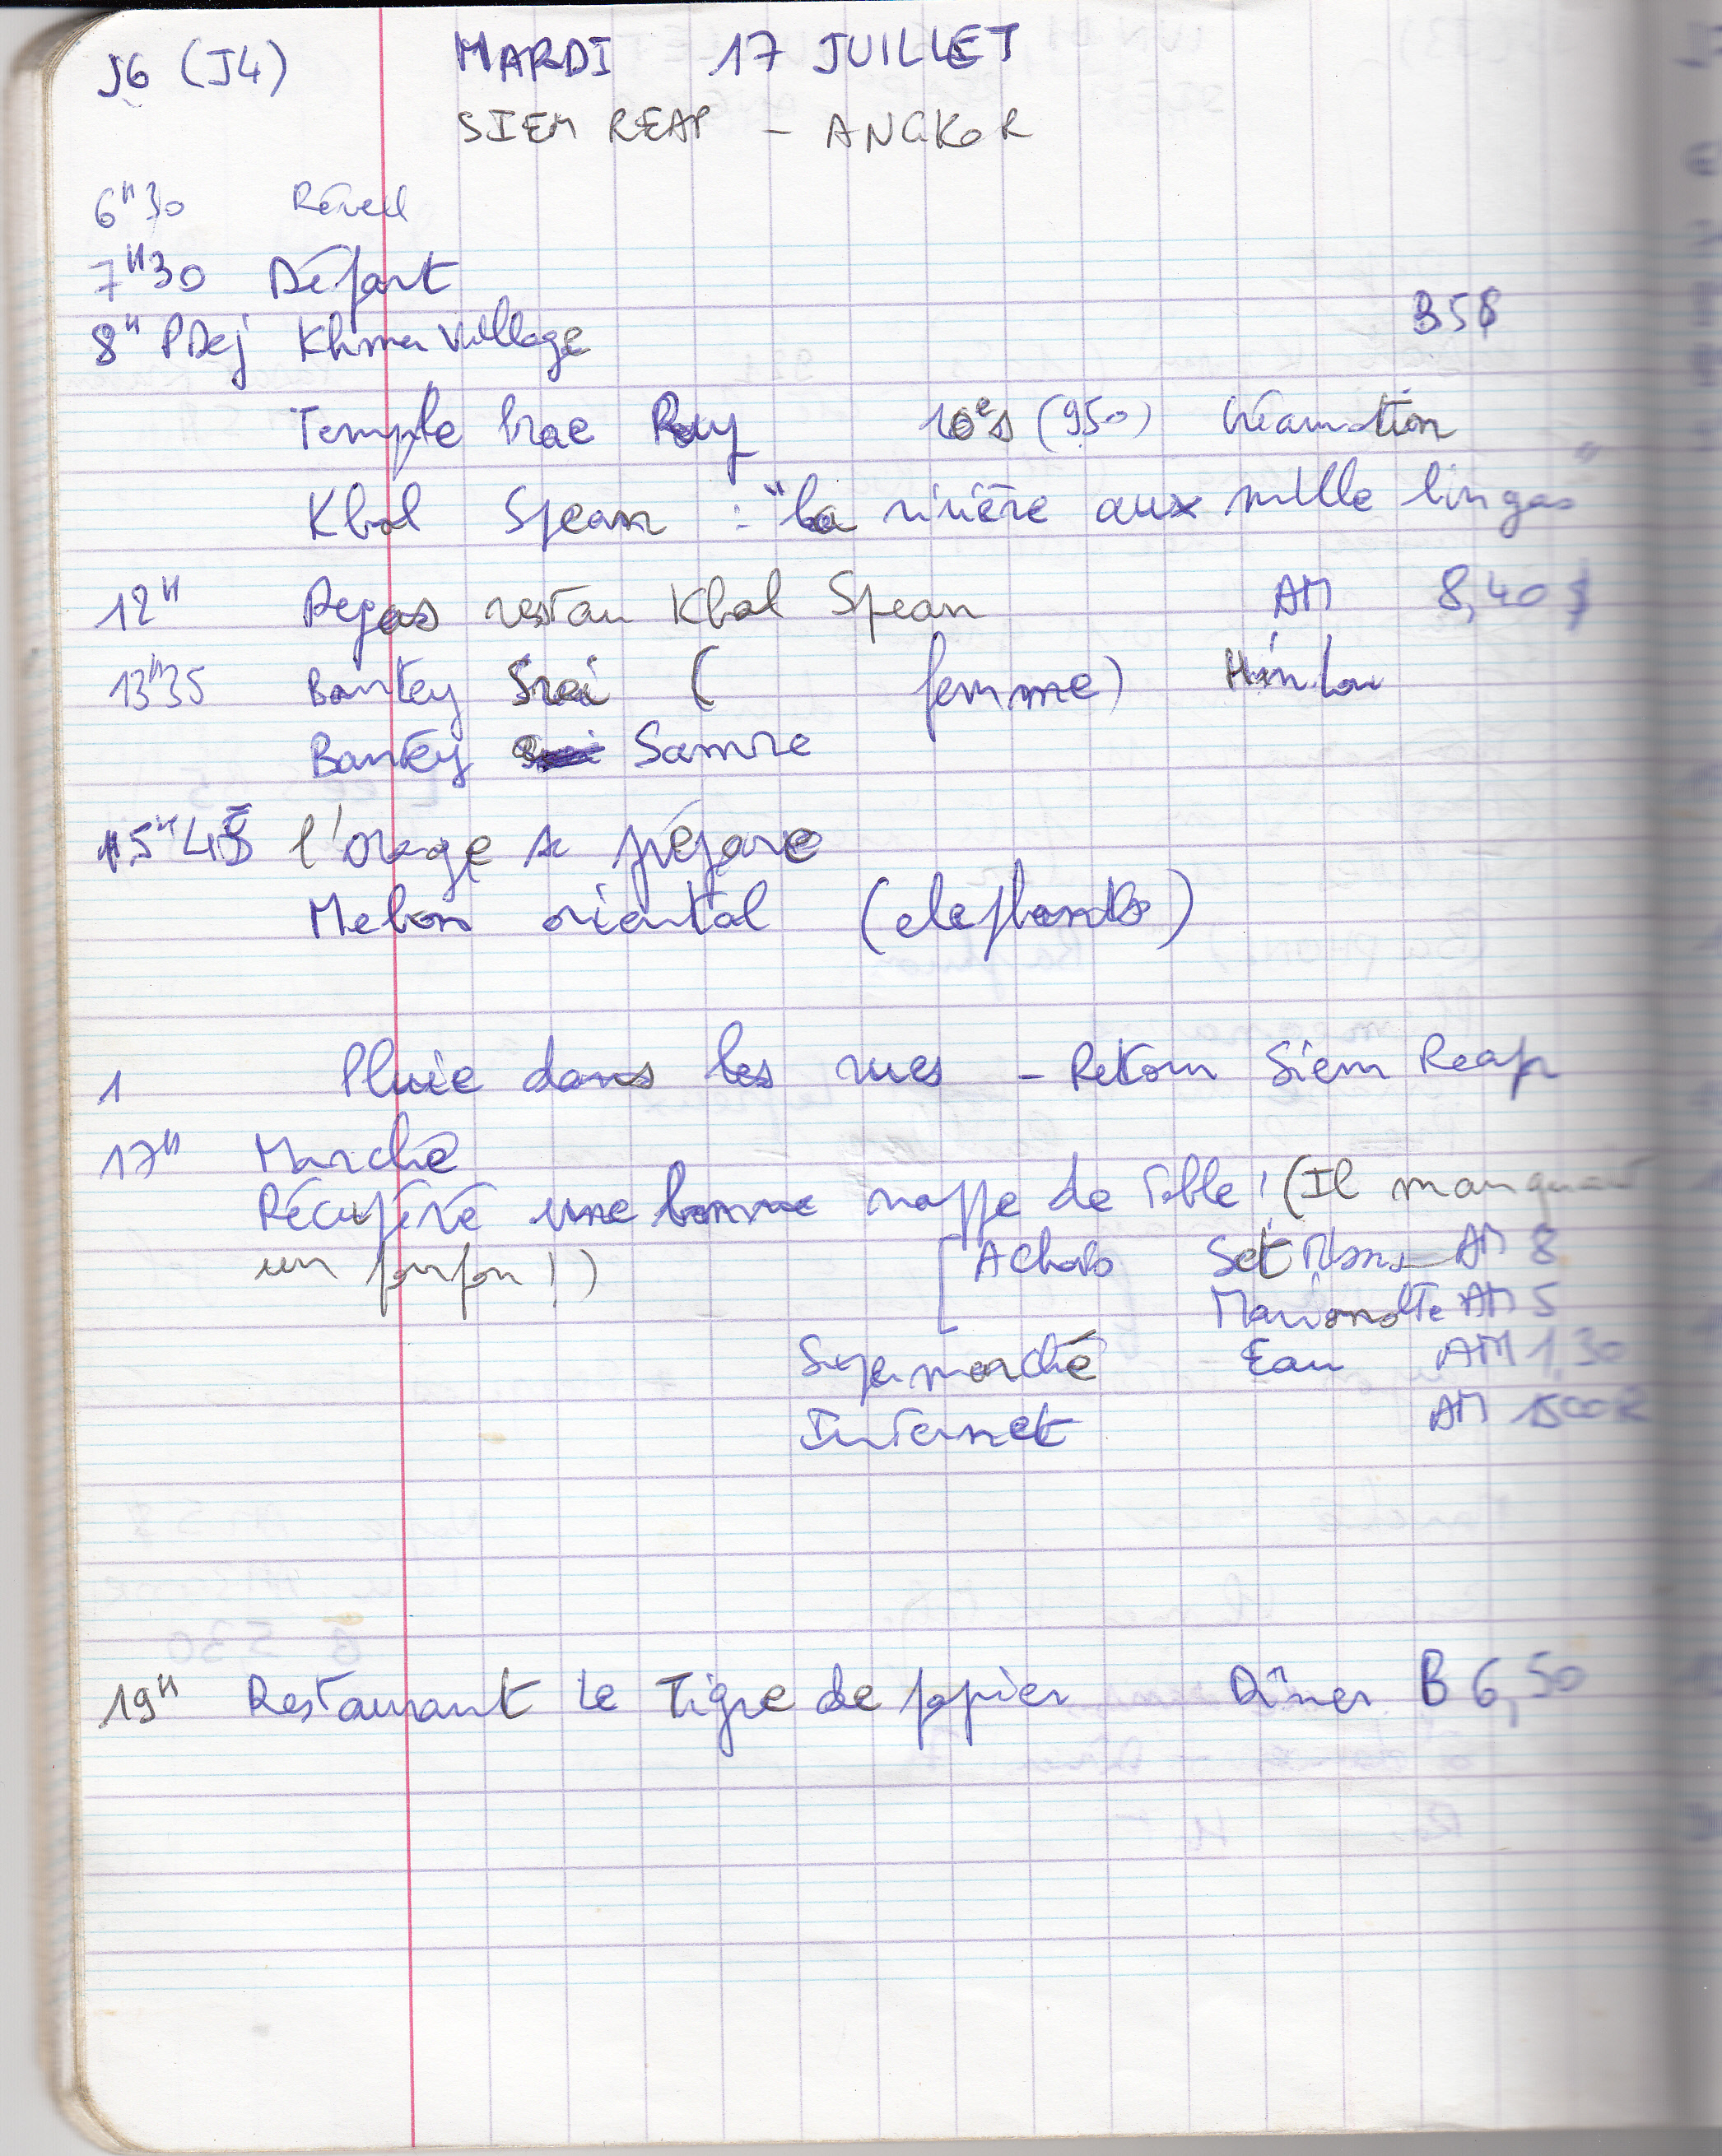 J6 (J4) MARDI 17 JUILLET
SIEM REAP - ANGKOR
6H30 Réveil
7H30 Départ
8H PDej Khmer Village B 5$
Temple Prae Ruy 10es (950) Créamation
Kbal Spean : "la rivière aux mille lingas"
12H Repas restau Kbal Spean AM 8,40 $
13H35 Bantey Srei ( femme) Hindou
Bantey Samre
15H45 l'orage se prépare
Mebon oriental (elephants)
1 Pluie dans les rues - Retour Siem Reap
17H Marché
Récupéré une bonne nappe de table ! (Il manquait
un pompon !)
[ Achats Set AM 8
Marionette AM 5
Supermarché Eau AM 1,30
Internet AM 1500R
19H Restaurant Le Tigre de papier Dîner B 6,50